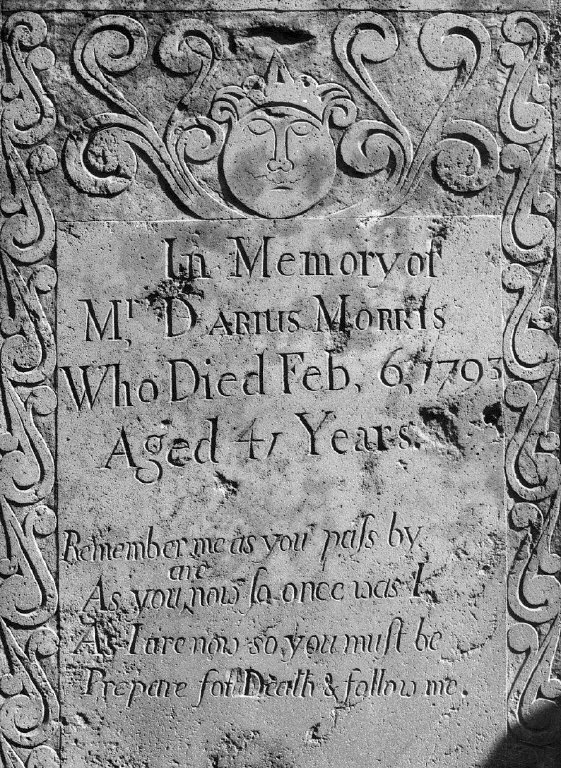 In Memory of
Mr, DARIUS MORRIS
Who Died Feb, 6, 1793
Aged 41 Years.
Remember me as you paſs by
are
As you now ſo once was I,
As I are now so you muſt be
Prepare for Death & follow me.